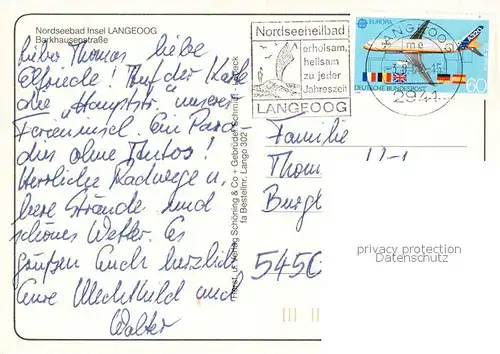 Nordseebad Insel LANGEOOG
Barkhausenstraße
Liebe Thomas liebe
Elfriede! Auf der Karte
die "Hauptstr." unserer
Ferieninsel. Ein Para
dies ohne Autos!
Herrliche Radwege u.
Strände und
schönes Wetter. Es
grüßen Euch herzlich
Eure Mechthild und
Walter
Schöning & Co + Gebrüder Schmidt - Lübeck
Bestellnr. Lango 3021
Nordseeheilbad
erholsam,
heilsam
zu jeder
Jahreszeit
LANGEOOG
LANGEOOG
2941
EUROPA
DEUTSCHE BUNDESPOST
60
Familie
Thom
Burgl
5450
privacy protection
Datenschutz